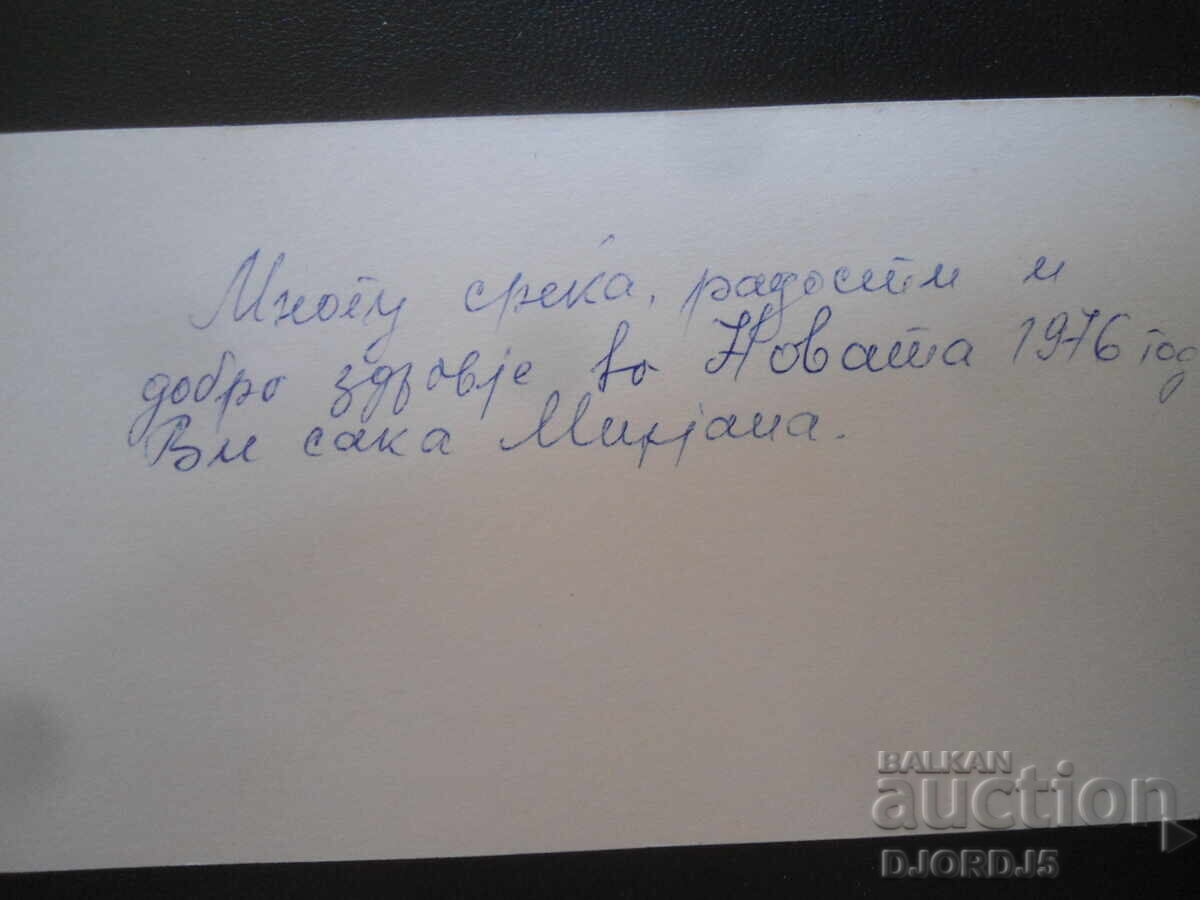 Многу среќа, радости и
добро здравје во Новата 1976 год
Ви сака Мирјана.
BALKAN
auction
DJORDJ5